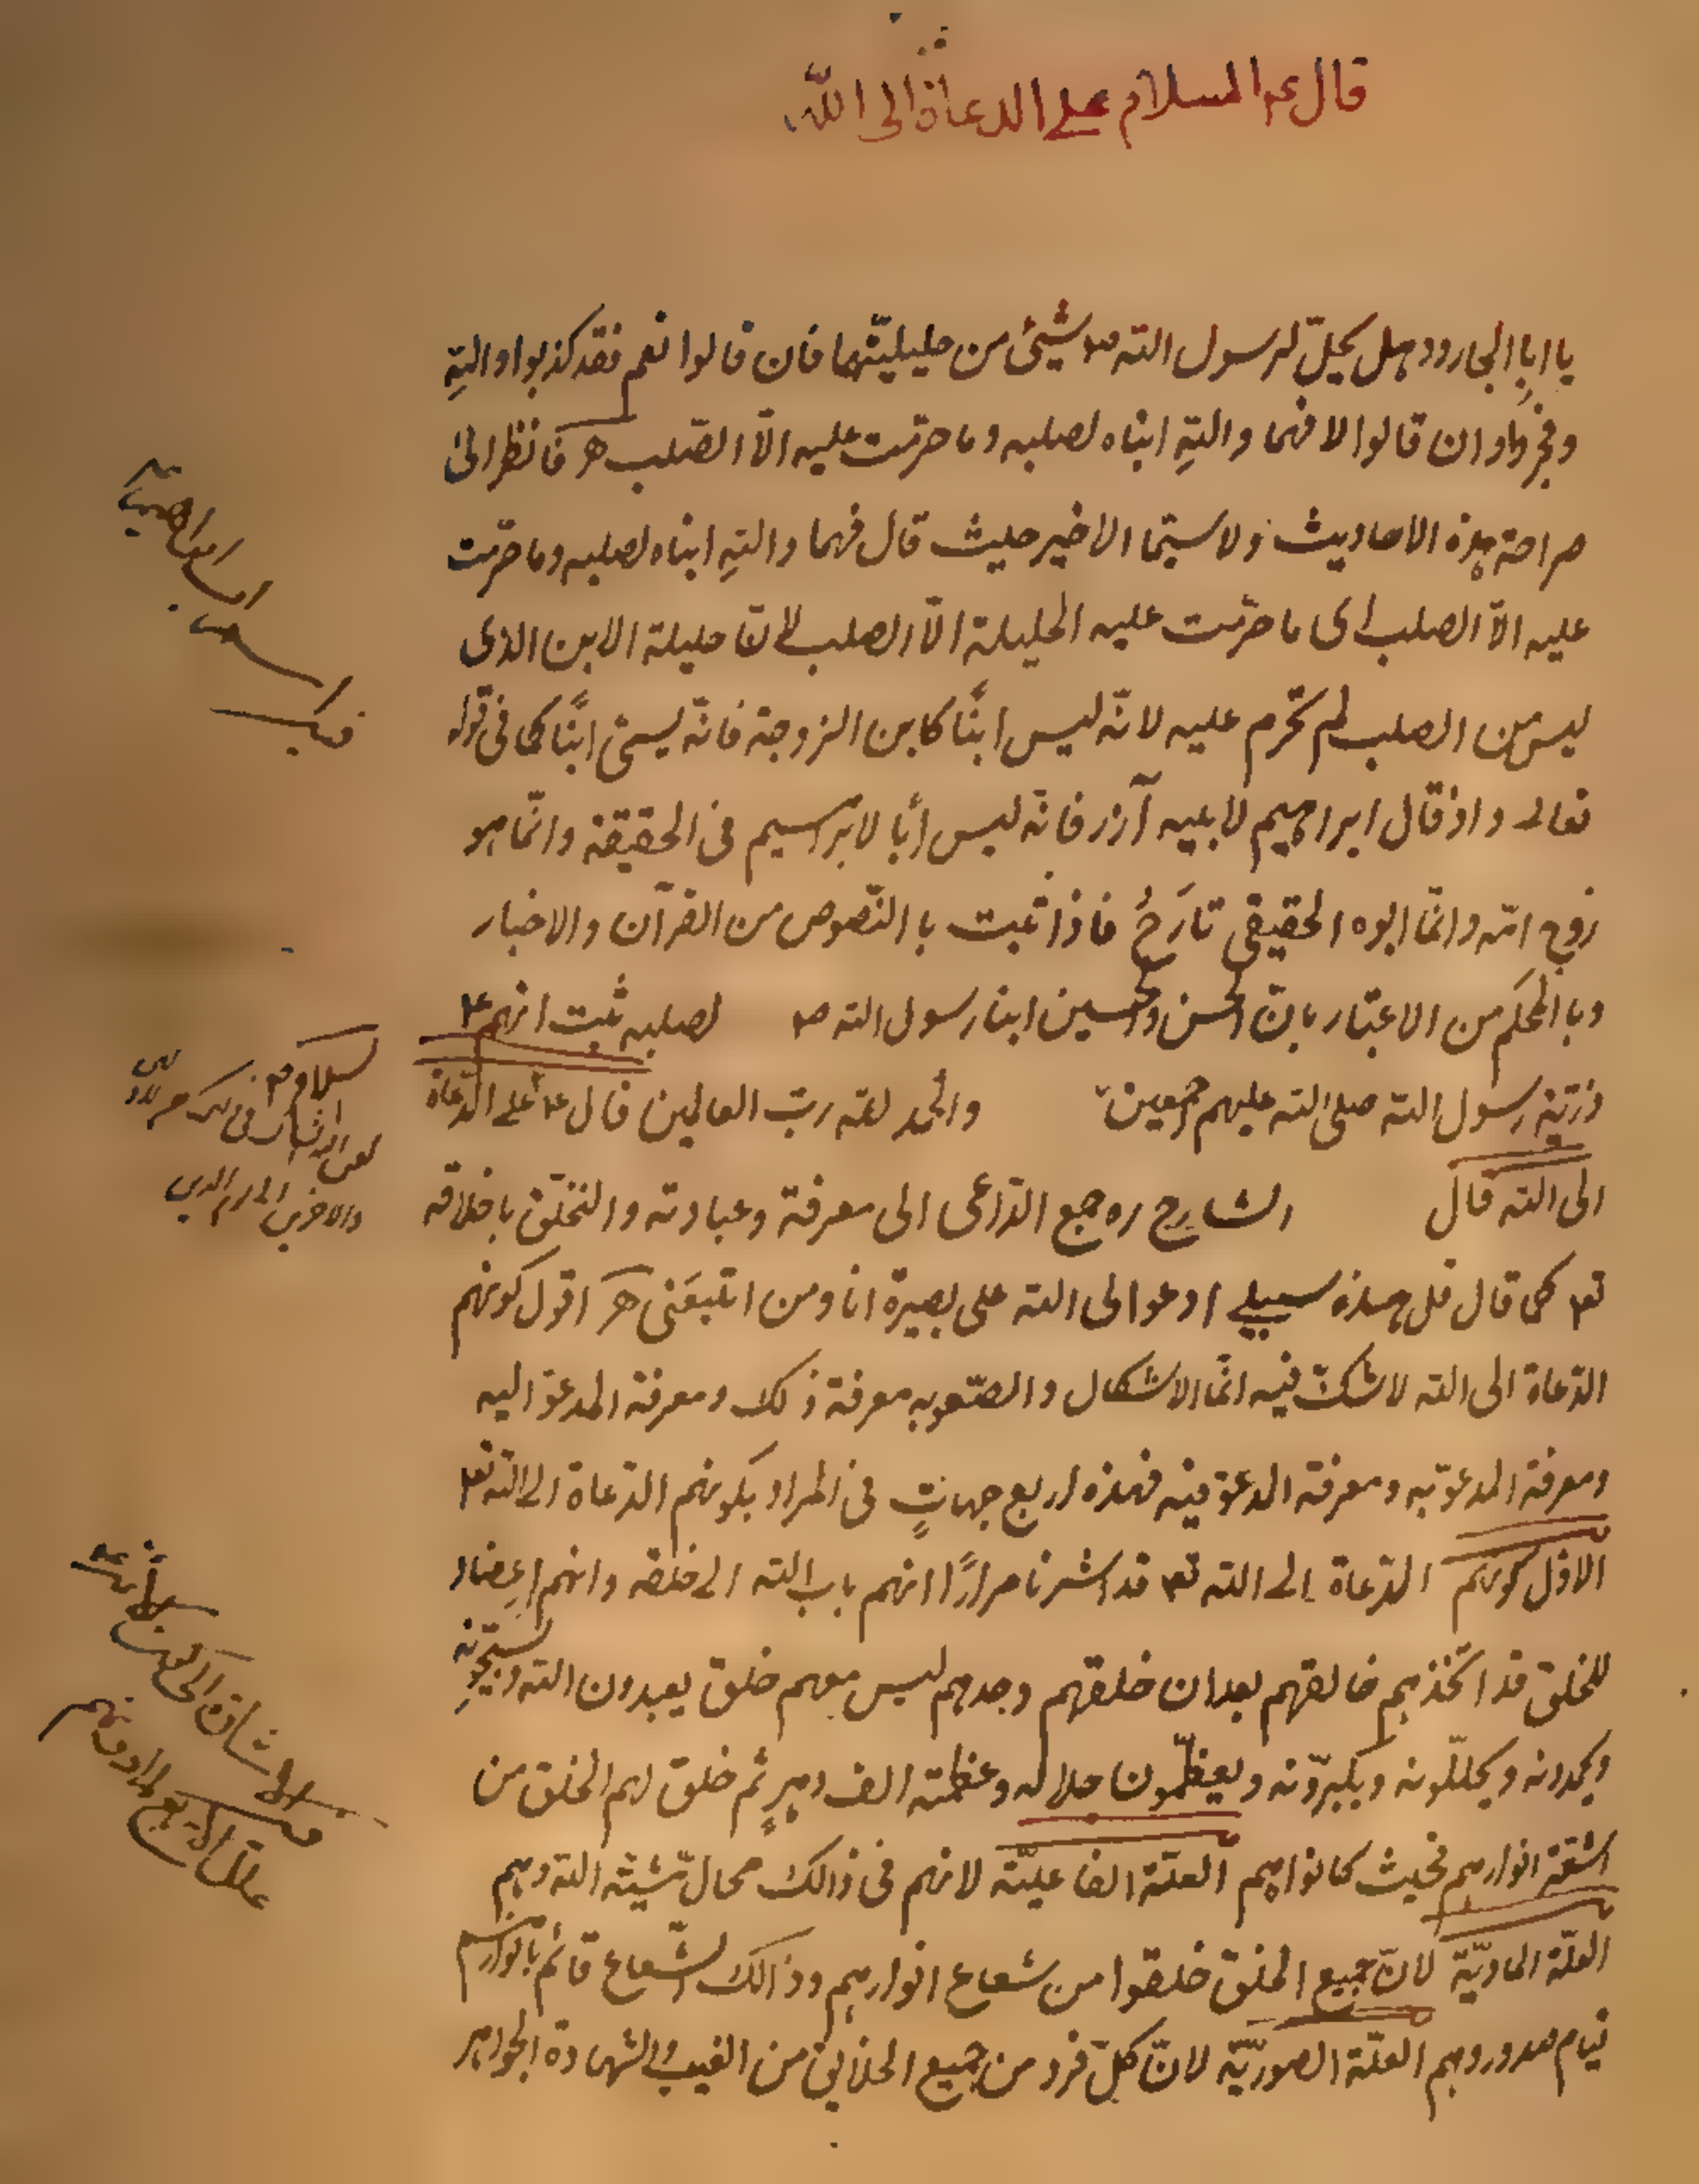 قال ع السلام على الدعاة الى الله
يا ابا الجارود هل يحلّ لرسول الله ص شيئ من حليلتهما فان قالوا نعم فقد كذبوا والله
وفجروا وان قالوا لا فهما والله ابناه لصلبه وما حرّمت عليه الّا الصّلب هـ فانظر الى
صراحة هذه الاحاديث ولا سيّما الاخير حيث قال فهما والله ابناه لصلبه وما حرّمت
عليه الّا الصلب اى ما حرّمت عليه الحليلة الّا الصلب لانّ حليلة الابن الذى
ليس من الصلب لم تحرم عليه لانّه ليس ابنًا كابن الزوجة فانّه يسمّى ابنًا كما فى قوله
تعالى واذ قال ابراهيم لابيه آزر فانّه ليس أبا لابراهيم فى الحقيقة وانّما هو
زوج امّه وانّما ابوه الحقيقي تارَخُ فاذا ثبت با النّصوص من القرآن والاخبار
وبا المحكم من الاعتبار بانّ الحسن والحسين ابنا رسول الله ص لصلبه ثبت انهم ع
ذرّيّة رسول الله صلى الله عليهم اجمعين والحمد لله ربّ العالمين قال ع على الدّعاة
الى الله قال الشارح ره جمع الدّاعى الى معرفة وعبادته والتخلّق باخلاقه
تع كما قال قل هذه سبيلي ادعوا الى الله على بصيرة انا ومن اتّبعَنى هـ اقول كونهم
الدّعاة الى الله لا شكّ فيه انّما الاشكال والصّعوبه معرفة ذلك ومعرفة المدعوّ اليه
ومعرفة المدعوّ به ومعرفة المدعوّ فيه فهذه اربع جهاتٍ فى المراد بكونهم الدّعاة الى الله تع
الاوّل كونهم الدّعاة الى الله تع قد اشرنا مرارًا انهم باب الله الى خلقه وانهم اعضاد
للخلق قد اتّخذهم خالقهم بعد ان خلقهم وحدهم ليس معهم خلق يعبدون الله ويسبّحونه
ويحمدونه ويهلّلونه ويكبرّونه ويعظّمون جلاله وعظمته الف دهرٍ ثم خلق لهم الخلق من
اشعّة انوارهم فحيث كانوا هم العلّة الفاعليّة لانهم فى ذالك محالّ مشيّة الله وهم
العلّة المادّيّة لانّ جميع الخلق خلقوا من شعاع انوارهم وذالك الشّعاع قائم بانوارهم
قيام صدور وهم العلّة الصوريّة لانّ كلّ فرد من جميع الخلائق من الغيب والشهادة الجواهر